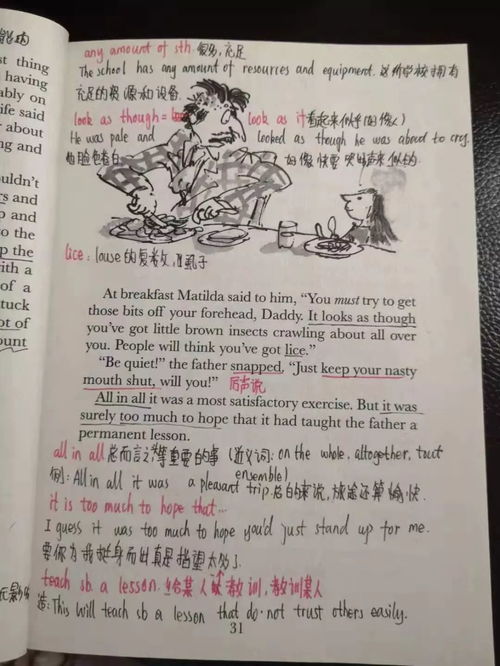 any amount of sth. 很多，充足
The school has any amount of resources and equipment. 这所学校拥有
充足的资源和设备.
look as though = look as it 看起来似乎(好像)
He was pale and looked as though he was about to cry.
他脸色苍白, 好像快要哭出声来似的.
lice: louse 的复数, 虱子
At breakfast Matilda said to him, “You must try to get
those bits off your forehead, Daddy. It looks as though
you’ve got little brown insects crawling about all over
you. People will think you’ve got lice.”
“Be quiet!” the father snapped, “Just keep your nasty
mouth shut, will you!” 厉声说
All in all it was a most satisfactory exercise. But it was
surely too much to hope that it had taught the father a
permanent lesson.
all in all 总而言之 等重要的事 (近义词: on the whole, altogether, tout
ensemble)
例: All in all it was a pleasant trip. 总的来说, 旅途还算愉快.
it is too much to hope that...
I guess it was too much to hope you'd just stand up for me.
要你为我挺身而出真是指望太多了.
teach sb. a lesson. 给某人教训, 教训某人
造: This will teach sb a lesson that do not trust others easily.
31
st thing
having
ably on
ife said
about
ng and
uldn’t
rs and
p and
to the
p the
ith a
of a
tuck
ot of
ount